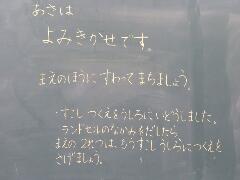 あさは
よみきかせです。
まえのほうにすわってまちましょう。
・すこしつくえをうしろにいどうしました。
ランドセルのなかみをだしたら、
まえの2れつは、もうすこしうしろにつくえを
さげましょう。